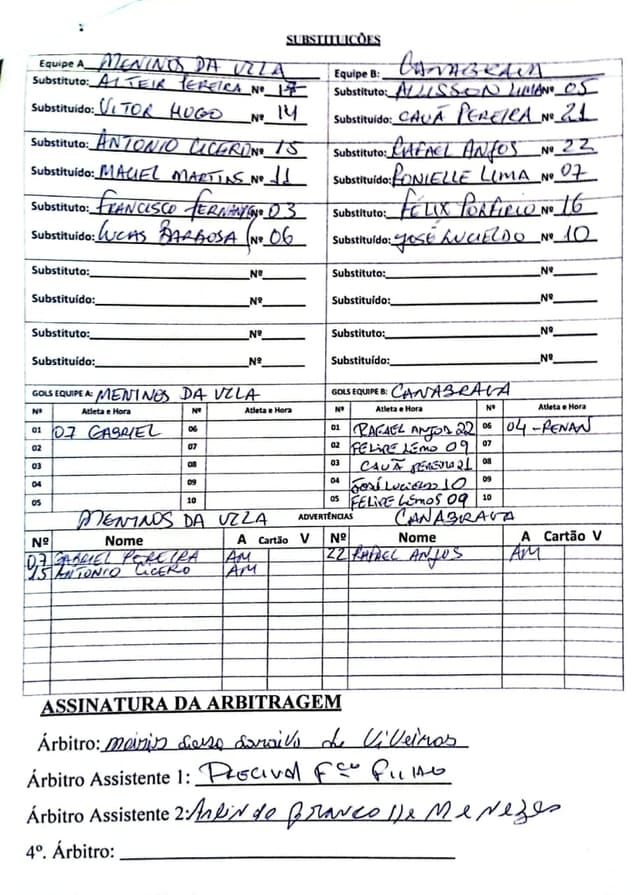 SUBSTITUICÕES
Equipe A MENINOS DA VZLA Equipe B: CANABRAVA
Substituto: ALTEIR PEREIRA Nº 17 Substituto: ALISSON LIMA Nº 05
Substituído: VITOR HUGO Nº 14 Substituído: CAUÃ PEREIRA Nº 21
Substituto: ANTONIO CICERO Nº 15 Substituto: RAFAEL ANJOS Nº 22
Substituído: MACIEL MARTINS Nº 11 Substituído: RONIELLE LIMA Nº 07
Substituto: FRANCISCO Nº 03 Substituto: FELIX PORFIRIO Nº 16
Substituído: LUCAS BARBOSA Nº 06 Substituído: JOSÉ LUCIELDO Nº 10
Substituto: Nº Substituto: Nº
Substituído: Nº Substituído: Nº
Substituto: Nº Substituto: Nº
Substituído: Nº Substituído: Nº
GOLS EQUIPE A: MENINOS DA VZLA GOLS EQUIPE B: CANABRAVA
Nº Atleta e Hora Nº Atleta e Hora Nº Atleta e Hora Nº Atleta e Hora
01 07 GABRIEL 06 01 RAFAEL ANJOS 22 06 04 - RENAN
02 07 02 FELIPE LEMO 09 07
03 08 03 CAUÃ PEREIRA 21 08
04 09 04 JOSÉ LUCIELDO 10 09
05 10 05 FELIPE LEMOS 09 10
MENINOS DA VZLA ADVERTÊNCIAS CANABRAVA
Nº Nome A Cartão V Nº Nome A Cartão V
07 GABRIEL PEREIRA AM 22 RAFAEL ANJOS AM
15 ANTONIO CICERO AM
ASSINATURA DA ARBITRAGEM
Árbitro: de Viveiros
Árbitro Assistente 1:
Árbitro Assistente 2: Arlindo Branco De Menezes
4º. Árbitro: